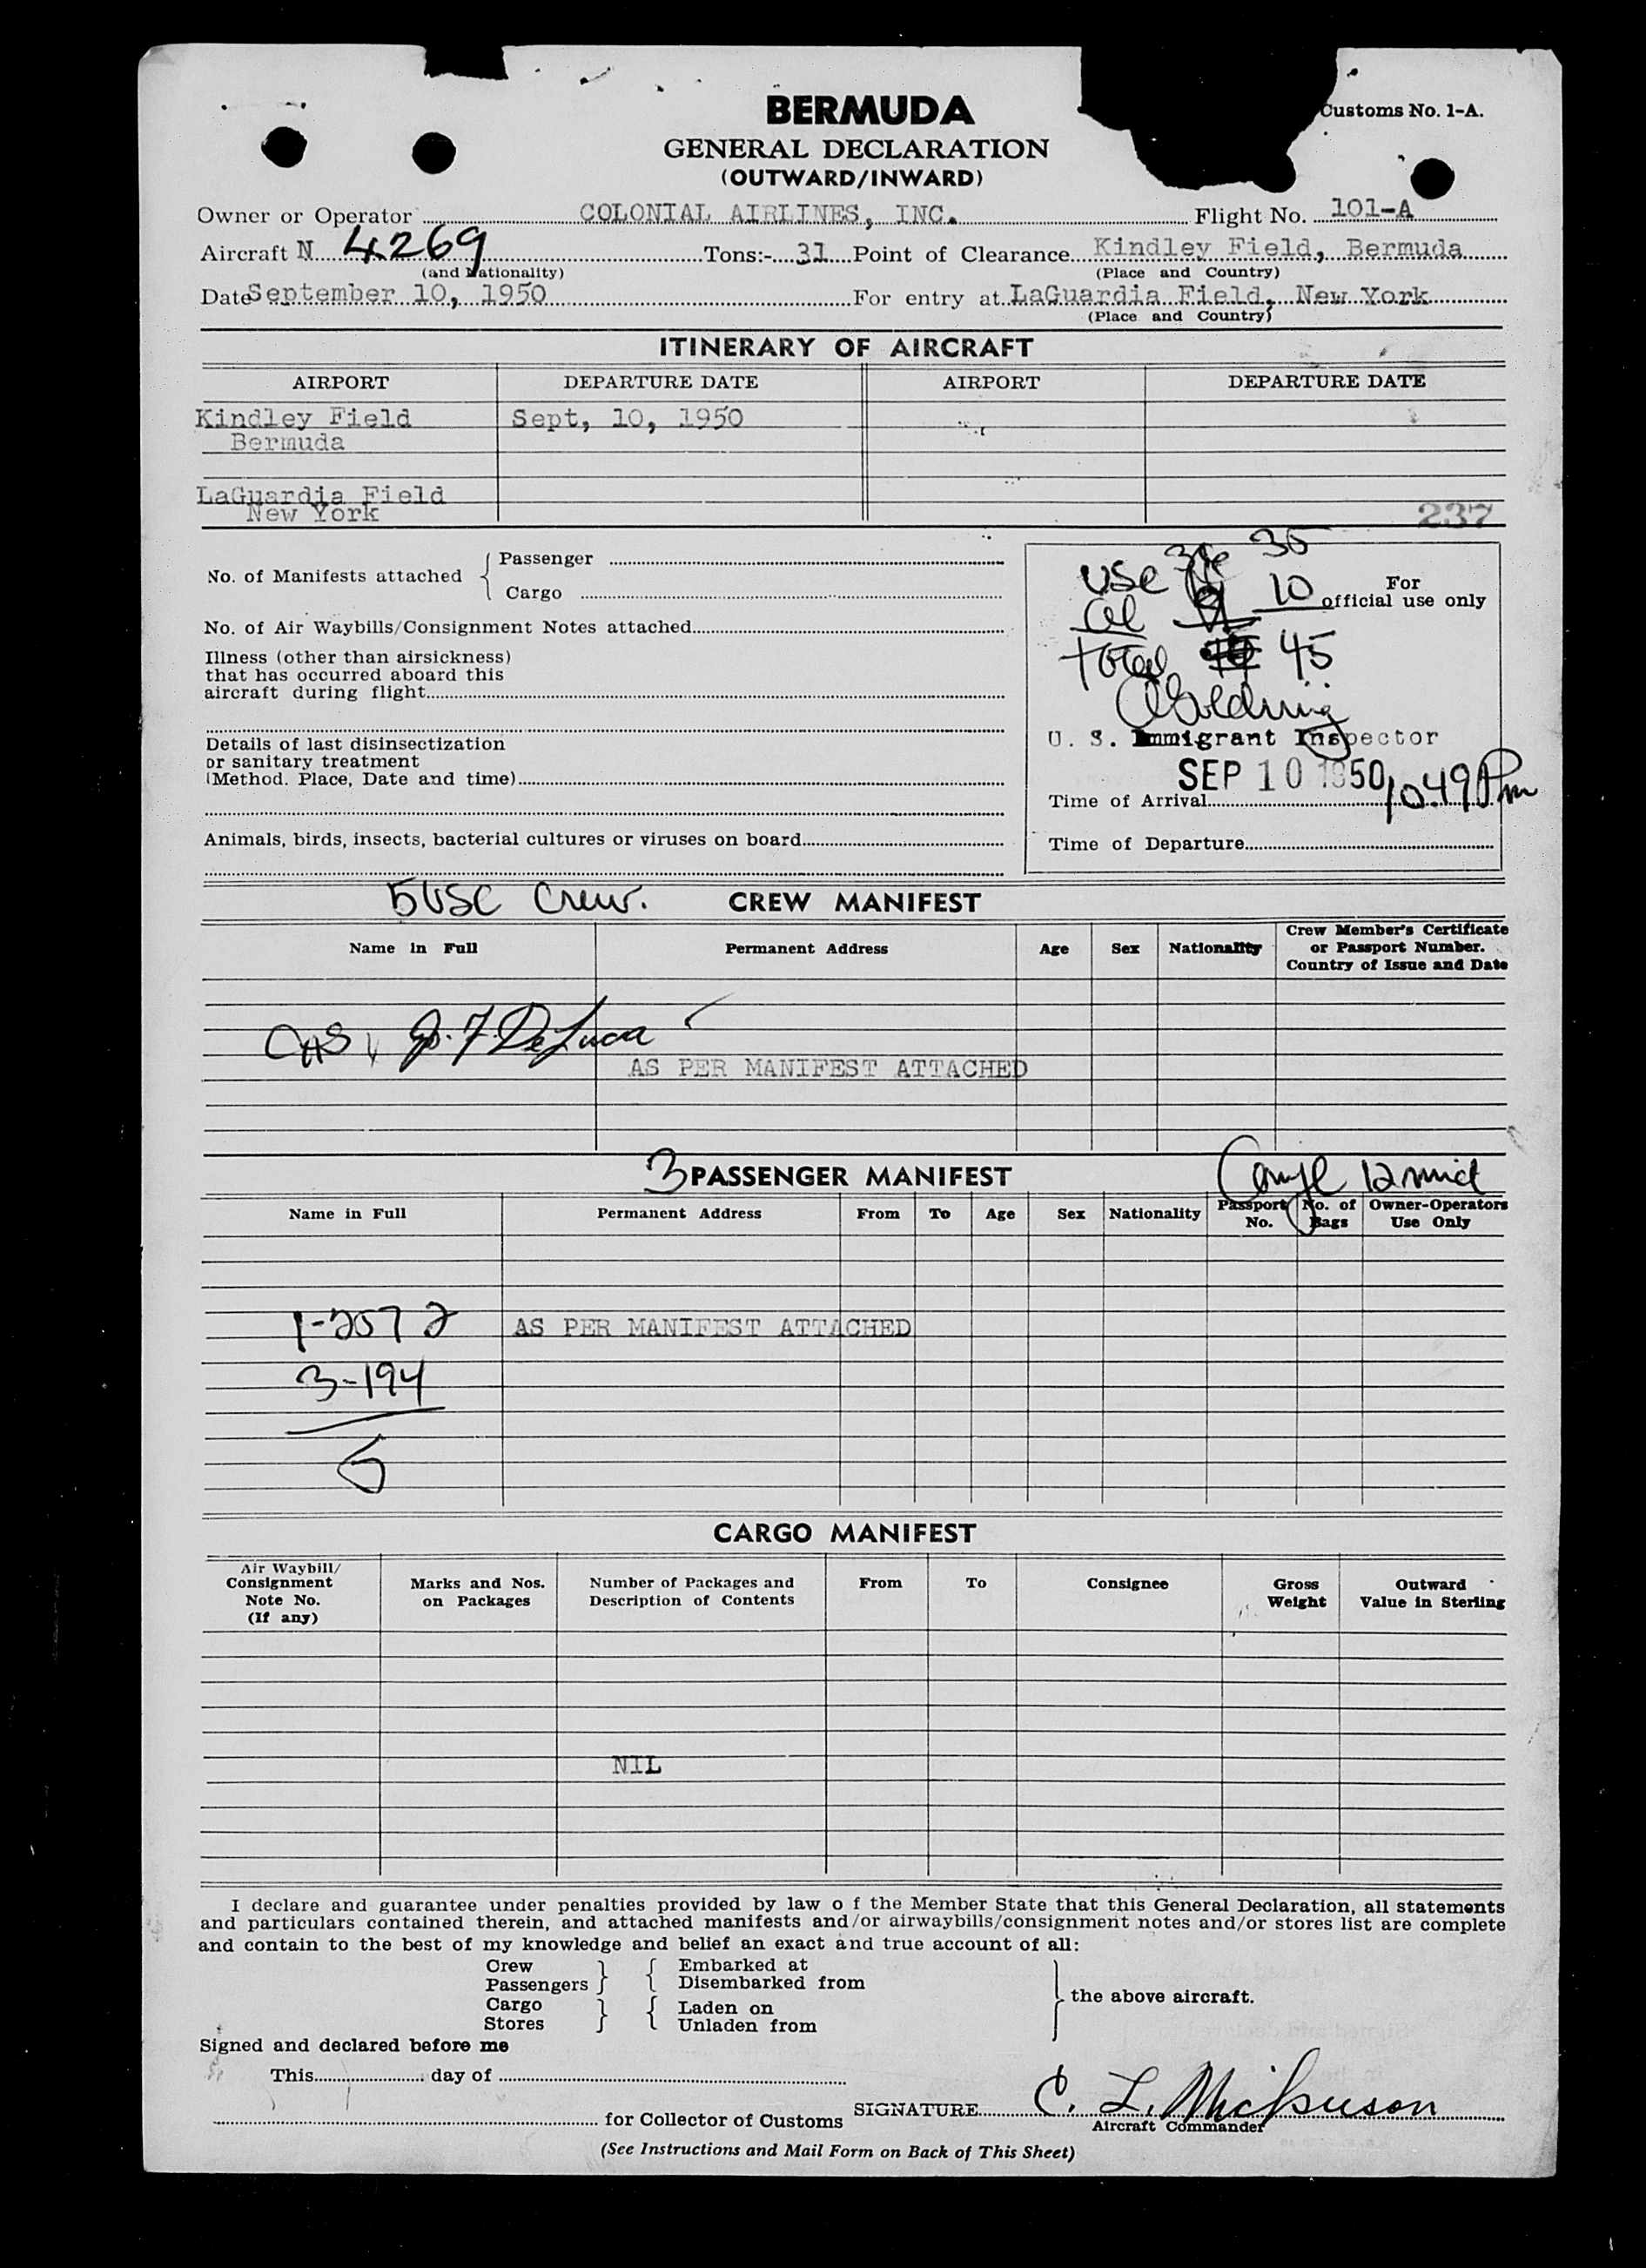 BERMUDA
Customs No. 1-A.
GENERAL DECLARATION
(OUTWARD/INWARD)
Owner or Operator COLONIAL AIRLINES, INC. Flight No. 101-A
Aircraft N 4269 Tons:- 31 Point of Clearance Kindley Field, Bermuda
(and Nationality) (Place and Country)
Date September 10, 1950 For entry at LaGuardia Field, New York
(Place and Country)
ITINERARY OF AIRCRAFT
AIRPORT DEPARTURE DATE AIRPORT DEPARTURE DATE
Kindley Field Sept, 10, 1950
Bermuda
LaGuardia Field
New York
237
No. of Manifests attached Passenger
Cargo
USC 35
For
10 official use only
No. of Air Waybills/Consignment Notes attached
Total 45
Illness (other than airsickness)
that has occurred aboard this
aircraft during flight
Details of last disinsectization
or sanitary treatment
(Method. Place, Date and time)
U. S. Immigrant Inspector
SEP 10 1950
Time of Arrival 1049 Pm
Animals, birds, insects, bacterial cultures or viruses on board
Time of Departure
5 USC Crew. CREW MANIFEST
Name in Full Permanent Address Age Sex Nationality Crew Member's Certificate
or Passport Number.
Country of Issue and Date
J. F. De Luca
AS PER MANIFEST ATTACHED
3 PASSENGER MANIFEST
Name in Full Permanent Address From To Age Sex Nationality Passport No. No. of Bags Owner-Operators Use Only
1-257 2 AS PER MANIFEST ATTACHED
3-194
5
CARGO MANIFEST
Air Waybill/
Consignment
Note No.
(If any)
Marks and Nos.
on Packages
Number of Packages and
Description of Contents
From
To
Consignee
Gross
Weight
Outward
Value in Sterling
NIL
I declare and guarantee under penalties provided by law o f the Member State that this General Declaration, all statements
and particulars contained therein, and attached manifests and/or airwaybills/consignment notes and/or stores list are complete
and contain to the best of my knowledge and belief an exact and true account of all:
Crew Embarked at
Passengers Disembarked from
the above aircraft.
Cargo Laden on
Stores Unladen from
Signed and declared before me
This day of
for Collector of Customs SIGNATURE C. L.
Aircraft Commander
(See Instructions and Mail Form on Back of This Sheet)